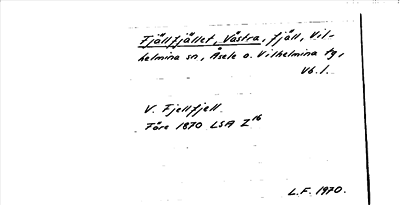 Fjällfjället, Västra, fjäll, Vil-
helmina sn, Åsele o. Vilhelmina tg,
Vb.l.
V. Fjellfjell.
Före 1870 LSA Z16
L.F. 1970.